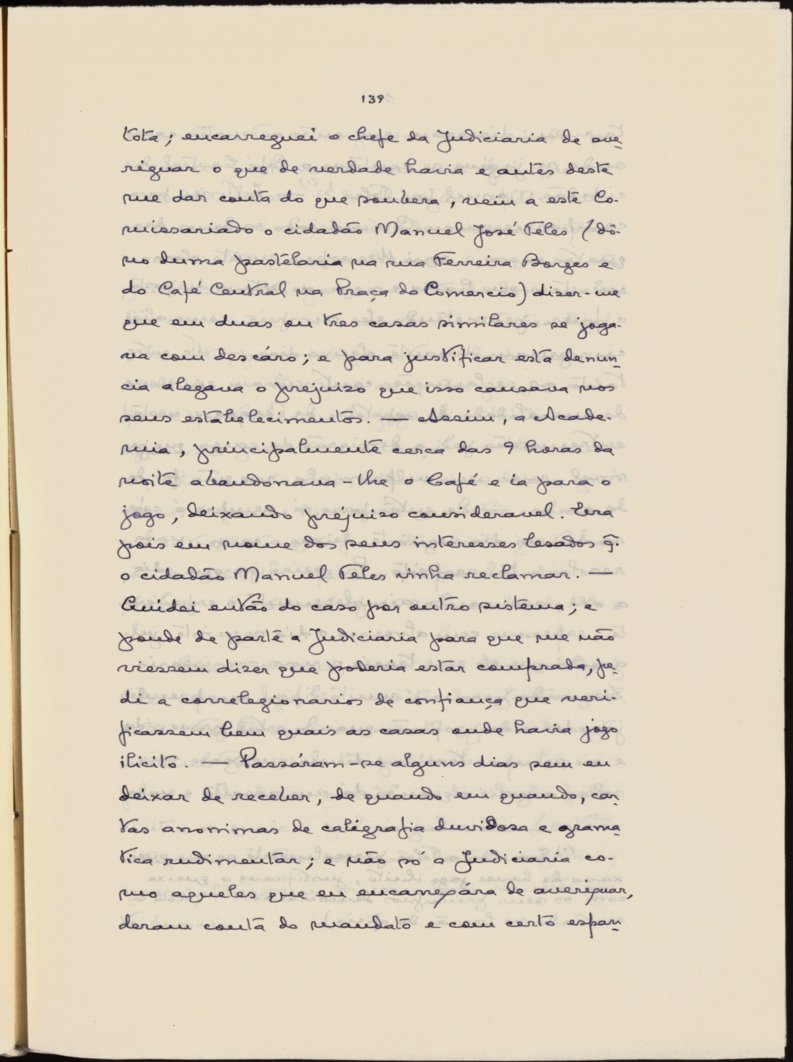 139
tota; encarreguei o chefe da Judiciaria de ave-
riguar o que de verdade havia e antes deste
me dar conta do que soubera, veiu a este Co-
missariado o cidadão Manuel José Teles (dô-
no duma pastelaria na rua Ferreira Borges e
do Café Central na Praça do Comercio) dizer-me
que em duas ou tres casas similares se joga-
va com descáro; e para justificar esta denun-
cia alegava o prejuizo que isso causava nos
seus estabelecimentos. — Assim, a Acade-
mia, principalmente cerca das 9 horas da
noite abandonava-lhe o Café e ia para o
jogo, deixando prejuizo consideravel. Era
pois em nome dos seus interesses lesados q.
o cidadão Manuel Teles vinha reclamar. —
Cuidei então do caso por outro sistema; e
ponde de parte a Judiciaria para que me não
viessem dizer que poderia estar comprada, pe-
di a correlegionarios de confiança que veri-
ficassem bem quais as casas onde havia jogo
ilicito. — Passáram-se alguns dias sem eu
deixar de receber, de quando em quando, car-
tas anonimas de caligrafia duvidosa e grama-
tica rudimentar; e não só a Judiciaria co-
mo aqueles que eu encarregára de averiguar,
deram conta do mandato e com certo espan-